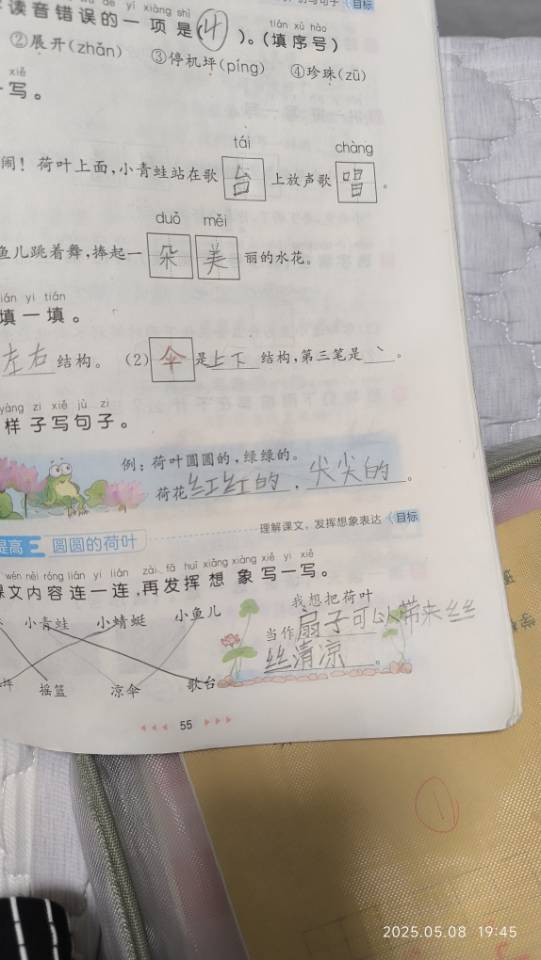 读音错误的一项是(4)。(填序号)
tián xù hào
②展开(zhǎn) ③停机坪(píng) ④珍珠(zū)
xiě
写。
tái chàng
闹!荷叶上面,小青蛙站在歌台上放声歌唱。
duǒ měi
鱼儿跳着舞,捧起一朵美丽的水花。
tián yi tián
填一填。
左右结构。 (2)伞是上下结构,第三笔是丶。
yàng zi xiě jù zi
样子写句子。
例:荷叶圆圆的,绿绿的。
荷花红红的,尖尖的。
提高 圆圆的荷叶 理解课文,发挥想象表达 目标
wén nèi róng lián yi lián zài fā huī xiǎng xiàng xiě yi xiě
课文内容连一连,再发挥想象写一写。
小青蛙 小蜻蜓 小鱼儿
我想把荷叶
当作扇子可以带来丝
丝清凉。
摇篮 凉伞 歌台
55
1
2025.05.08 19:45